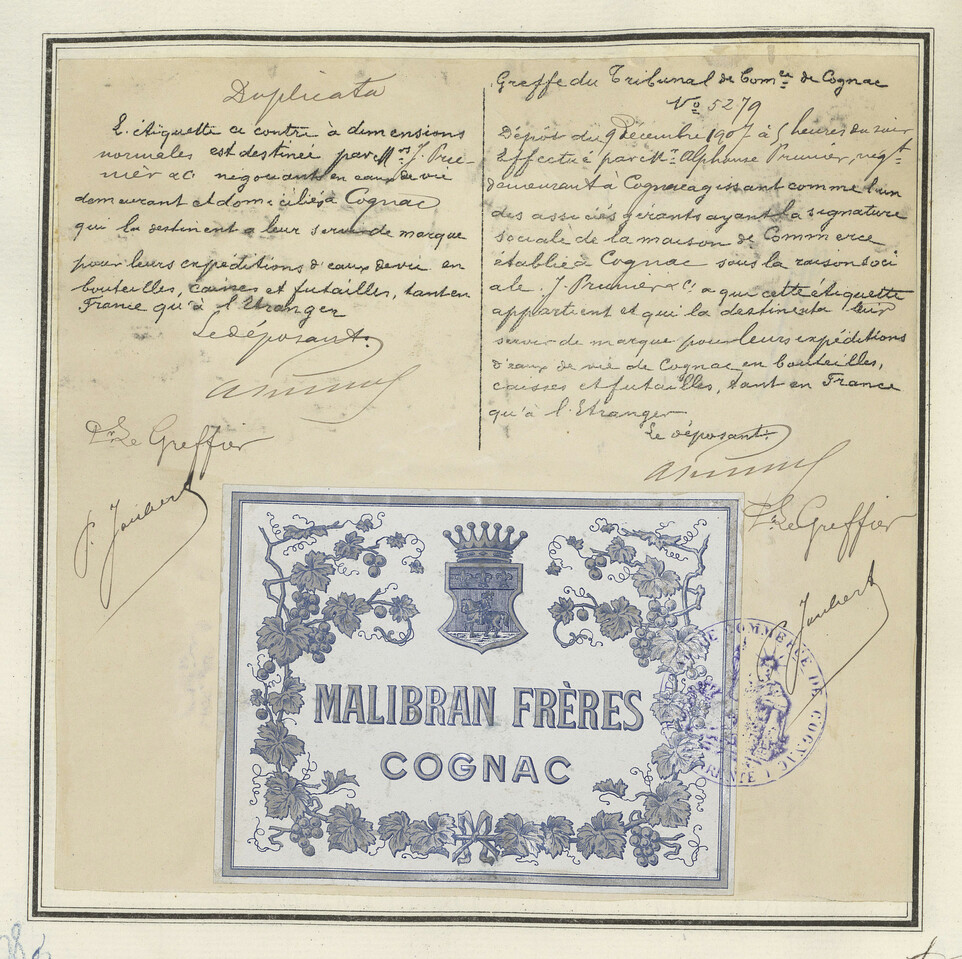 Duplicata
L'étiquette ci contre à dimensions
normales est destinée par Mrs J. Pru-
nier & C. négociants en eaux de vie
demeurant et domiciliés à Cognac
qui la destinent a leur servir de marque
pour leurs expéditions d'eaux de vie en
bouteilles, caisses et futailles, tant en
France qu'à l'Etranger
Le déposant.
Pr Le Greffier
Joubert
Greffe du Tribunal de Comce de Cognac
No 5279
Dépôt du 9 Décembre 1907 à 5 heures du soir
Effectué par Mr. Alphonse Prunier, négt
demeurant à Cognac agissant comme l'un
des associés gérants ayant la signature
sociale de la maison de Commerce
établie à Cognac sous la raison soci
ale J. Prunier & Ce a qui cette étiquette
appartient et qui la destine à leur
servir de marque pour leurs expéditions
d'eaux de vie de Cognac en bouteilles,
caisses et futailles, tant en France
qu'à l'Etranger
Le déposant.
Pr Le Greffier
Joubert
MALIBRAN FRÈRES
COGNAC
DE COMMERCE DE COGNAC